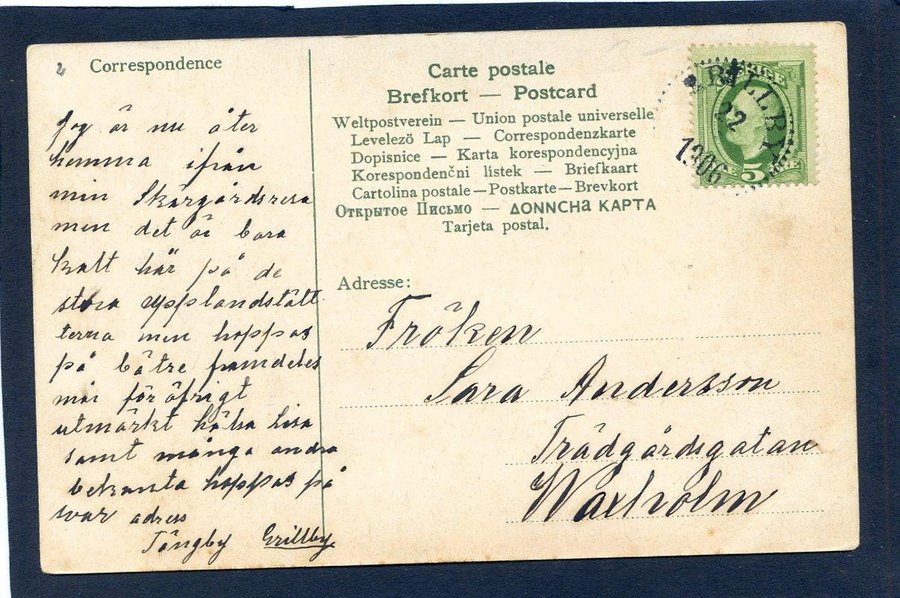 Correspondence
Jag är nu åter
hemma ifrån
min Skärgårdsresa
men det är bara
kallt här på de
stora upplandslätt
terna men hoppas
på bätre framdeles
mår för öfrigt
utmärkt hälsa Lisa
samt många andra
bekanta hoppas på
svar adress
Tängby Grillby
Carte postale
Brefkort — Postcard
Weltpostverein — Union postale universelle
Levelezö Lap — Correspondenzkarte
Dopisnice — Karta korespondencyjna
Korespondenční listek — Briefkaart
Cartolina postale — Postkarte — Brevkort
Открытое Письмо — ΔΟΝΝCHa КАРТА
Tarjeta postal.
GRILLBY
22
1906
5
Adresse:
Fröken
Sara Andersson
Trädgårdsgatan
Waxholm